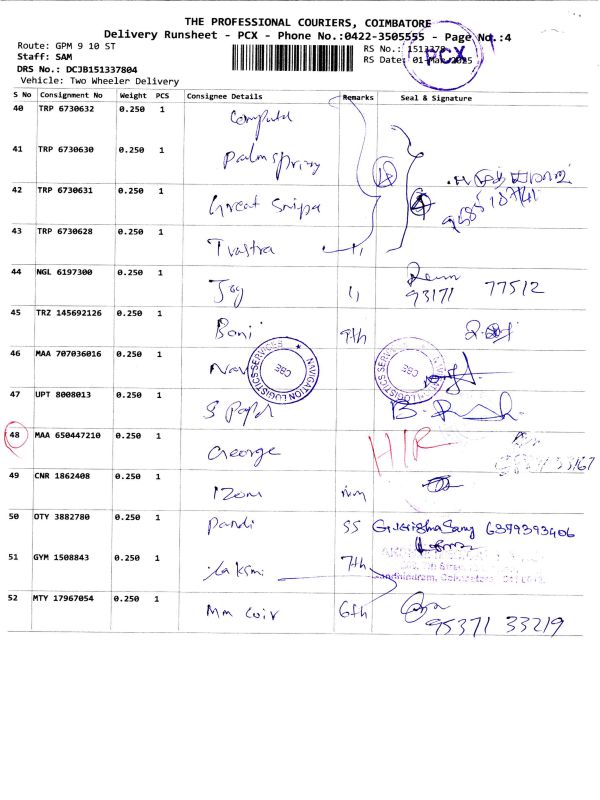 THE PROFESSIONAL COURIERS, COIMBATORE
Delivery Runsheet - PCX - Phone No.:0422-3505555 - Page No.:4
Route: GPM 9 10 ST
RS No.: 1513378
Staff: SAM
RS Date: 01-Mar-2025
DRS No.: DCJB151337804
PCX
Vehicle: Two Wheeler Delivery
S No Consignment No Weight PCS Consignee Details Remarks Seal & Signature
40 TRP 6730632 0.250 1
41 TRP 6730630 0.250 1
42 TRP 6730631 0.250 1 Great
43 TRP 6730628 0.250 1 Tvastra
44 NGL 6197300 0.250 1 Joy
93171 77512
45 TRZ 145692126 0.250 1 Bani 9th
46 MAA 707036016 0.250 1 Nav
NAVIGATION LOGISTICS SERVICES CBE
NAVIGATION LOGISTICS SERVICES CBE
47 UPT 8008013 0.250 1
48 MAA 650447210 0.250 1 George
49 CNR 1862408 0.250 1
50 OTY 3882780 0.250 1 Pandi SS 6399393406
51 GYM 1508843 0.250 1 Laksmi 7th
Gandhipuram, Coimbatore
52 MTY 17967054 0.250 1 Mm Coir 6th
95371 33219